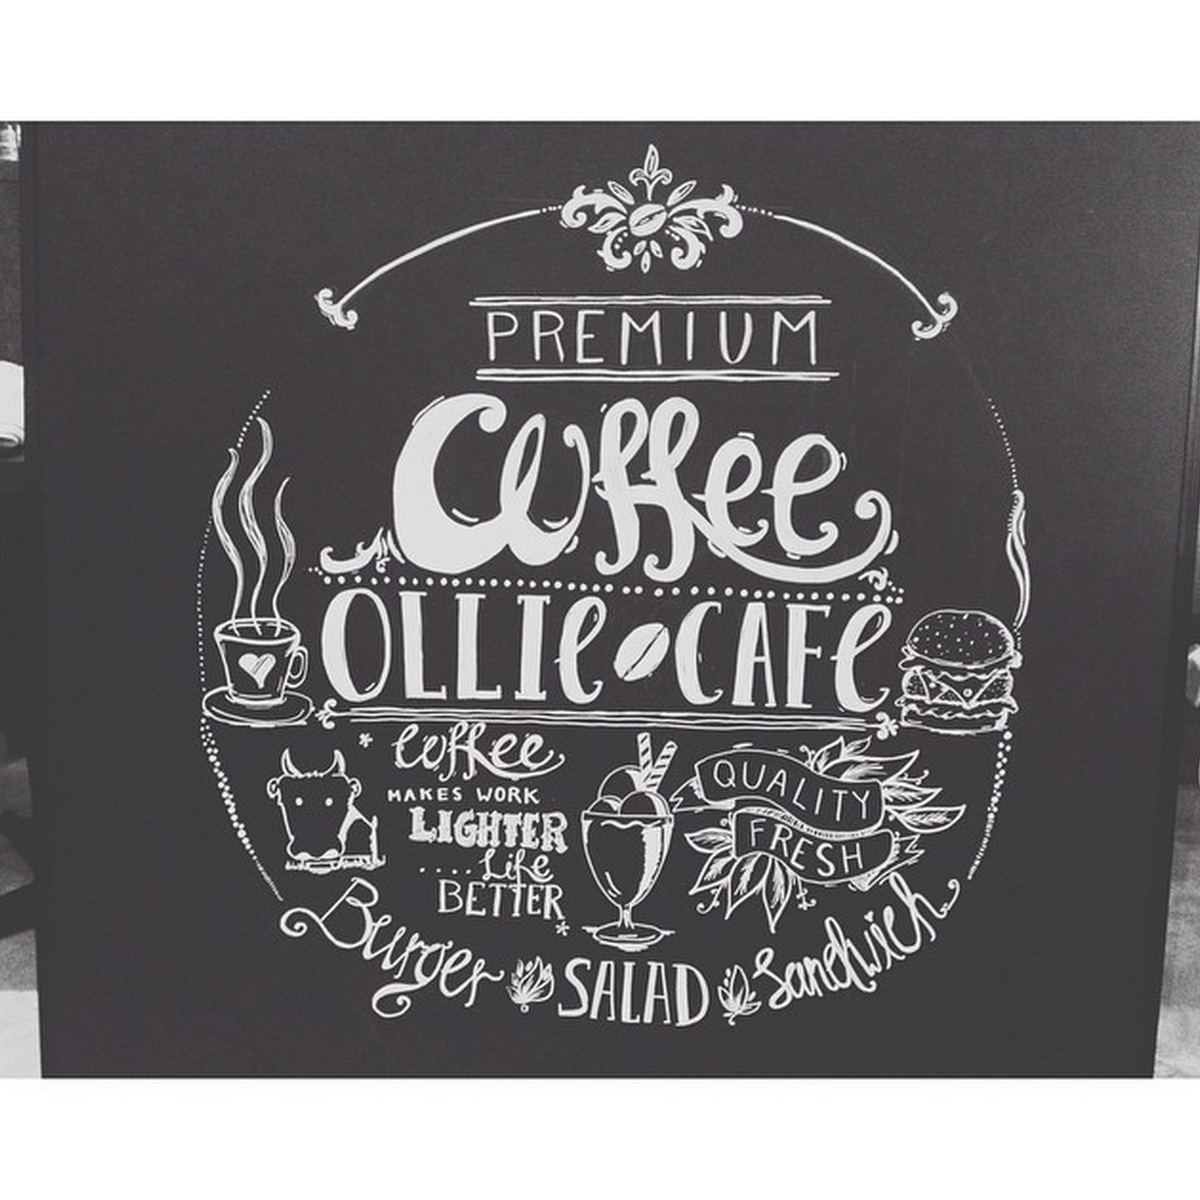 PREMIUM
Coffee
OLLIE CAFE
Coffee
MAKES WORK
LIGHTER
....Life
BETTER
QUALITY
FRESH
Burger SALAD Sandwich